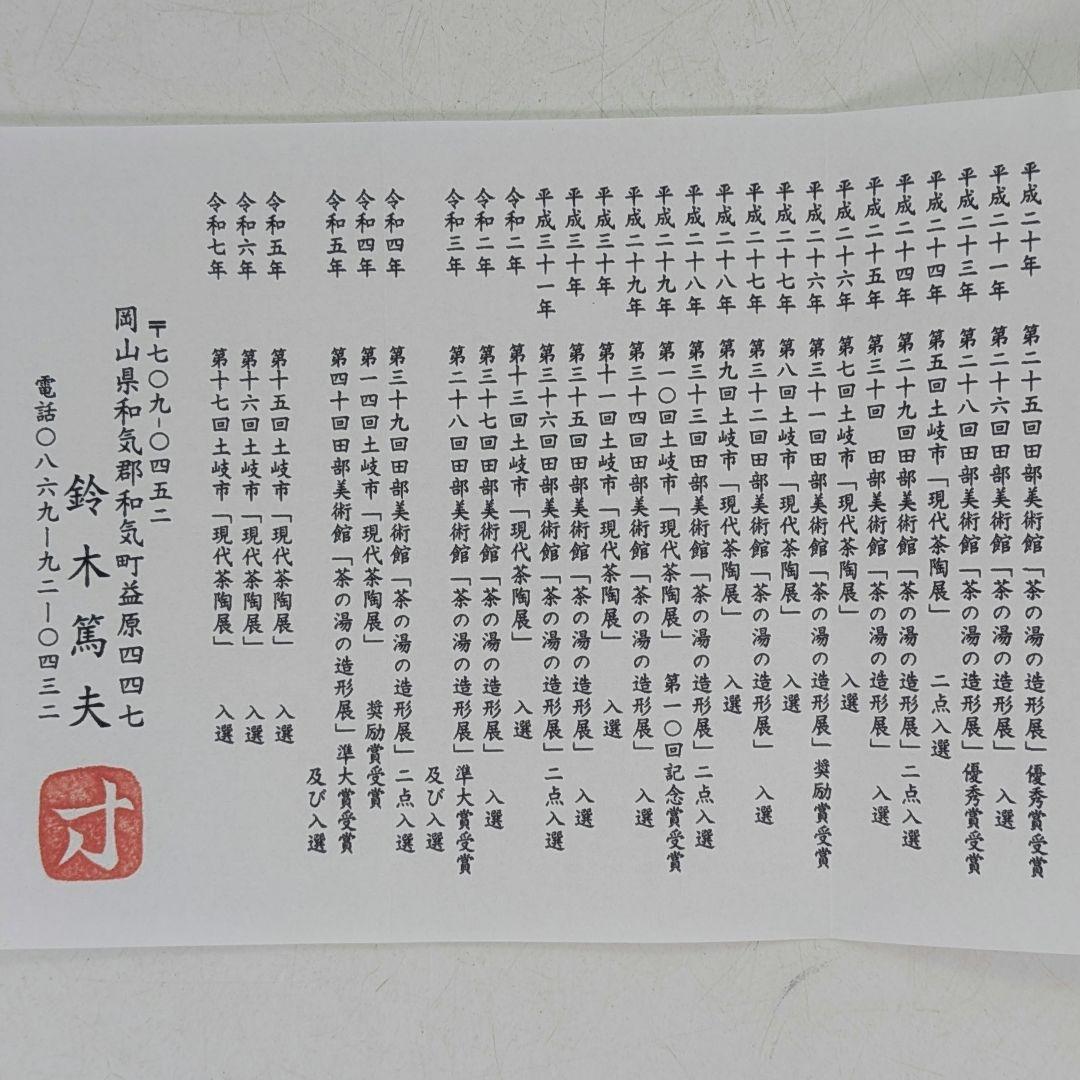 平成二十年 第二十五回田部美術館「茶の湯の造形展」優秀賞受賞
平成二十一年 第二十六回田部美術館「茶の湯の造形展」 入選
平成二十三年 第二十八回田部美術館「茶の湯の造形展」優秀賞受賞
平成二十四年 第五回土岐市「現代茶陶展」 二点入選
平成二十四年 第二十九回田部美術館「茶の湯の造形展」二点入選
平成二十五年 第三十回 田部美術館「茶の湯の造形展」 入選
平成二十六年 第七回土岐市「現代茶陶展」 入選
平成二十六年 第三十一回田部美術館「茶の湯の造形展」奨励賞受賞
平成二十七年 第八回土岐市「現代茶陶展」 入選
平成二十七年 第三十二回田部美術館「茶の湯の造形展」 入選
平成二十八年 第九回土岐市「現代茶陶展」 入選
平成二十八年 第三十三回田部美術館「茶の湯の造形展」二点入選
平成二十九年 第一〇回土岐市「現代茶陶展」 第一〇回記念賞受賞
平成二十九年 第三十四回田部美術館「茶の湯の造形展」 入選
平成三十年 第十一回土岐市「現代茶陶展」 入選
平成三十年 第三十五回田部美術館「茶の湯の造形展」 入選
平成三十一年 第三十六回田部美術館「茶の湯の造形展」二点入選
令和二年 第十三回土岐市「現代茶陶展」 入選
令和二年 第三十七回田部美術館「茶の湯の造形展」 入選
令和三年 第二十八回田部美術館「茶の湯の造形展」準大賞受賞
及び入選
令和四年 第三十九回田部美術館「茶の湯の造形展」二点入選
令和四年 第一四回土岐市「現代茶陶展」 奨励賞受賞
令和五年 第四十回田部美術館「茶の湯の造形展」準大賞受賞
及び入選
令和五年 第十五回土岐市「現代茶陶展」 入選
令和六年 第十六回土岐市「現代茶陶展」 入選
令和七年 第十七回土岐市「現代茶陶展」 入選
〒七〇九-〇四五二
岡山県和気郡和気町益原四四七
鈴木篤夫
電話〇八六九ー九二ー〇四三二